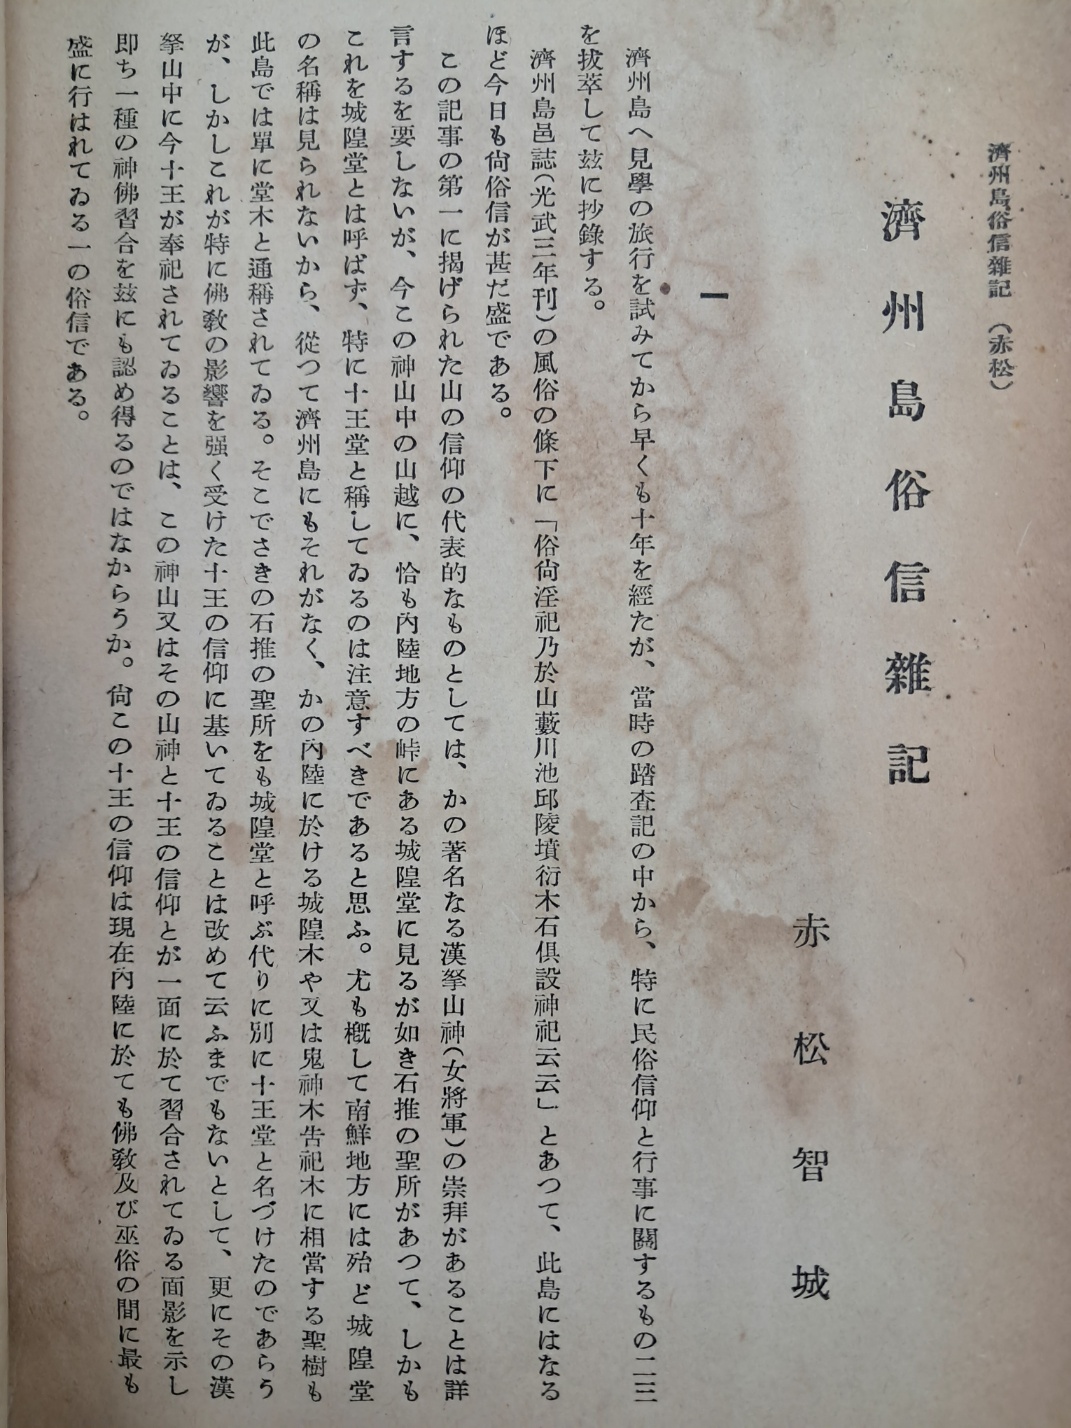 濟州島俗信雜記　（赤松）
濟州島俗信雜記
赤松智城
一
濟州島へ見學の旅行を試みてから早くも十年を經たが、當時の踏査記の中から、特に民俗信仰と行事に關するもの二三
を拔萃して玆に抄錄する。
濟州島邑誌（光武三年刊）の風俗の條下に「俗尙淫祀乃於山藪川池邱陵墳衍木石俱設神祀云云」とあつて、此島にはなる
ほど今日も尙俗信が甚だ盛である。
この記事の第一に揭げられた山の信仰の代表的なものとしては、かの著名なる漢拏山神（女將軍）の崇拜があることは詳
言するを要しないが、今この神山中の山越に、恰も內陸地方の峠にある城隍堂に見るが如き石推の聖所があつて、しかも
これを城隍堂とは呼ばず、特に十王堂と稱してゐるのは注意すべきであると思ふ。尤も槪して南鮮地方には殆ど城隍堂
の名稱は見られないから、從つて濟州島にもそれがなく、かの內陸に於ける城隍木や又は鬼神木告祀木に相當する聖樹も
此島では單に堂木と通稱されてゐる。そこでさきの石推の聖所をも城隍堂と呼ぶ代りに別に十王堂と名づけたのであらう
が、しかしこれが特に佛敎の影響を强く受けた十王の信仰に基いてゐることは改めて云ふまでもないとして、更にその漢
拏山中に今十王が奉祀されてゐることは、この神山又はその山神と十王の信仰とが一面に於て習合されてゐる面影を示し
卽ち一種の神佛習合を玆にも認め得るのではなからうか。尙この十王の信仰は現在內陸に於ても佛敎及び巫俗の間に最も
盛に行はれてゐる一の俗信である。